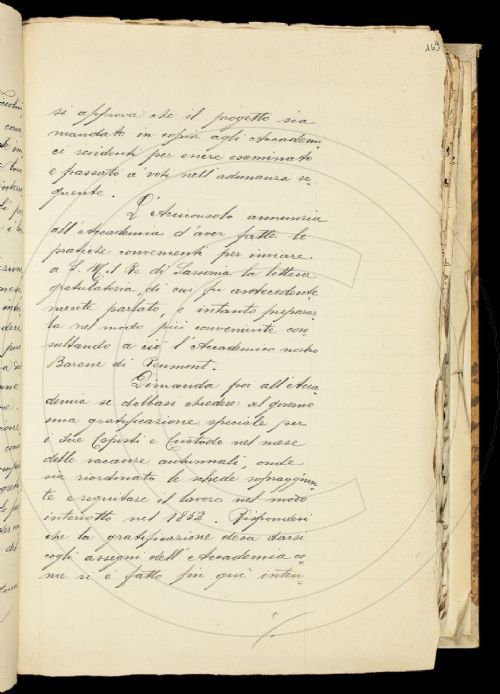 169
si approva che il progetto sia
mandato in copia agli Accademi-
ci residenti per essere esaminato
e passato a voti nell'adunanza se-
guente.
L'Arciconsolo annunzia
all'Accademia d'aver fatte le
pratiche convenienti per inviare
a S. M. il Re di Sassonia la lettera
gratulatoria, di cui fu antecedente-
mente parlato, e intanto preparar-
la nel modo più conveniente con-
sultando a ciò l'Accademico nostro
Barone di Reumont.
Dimanda poi all'Acca-
demia se debbasi chiedere al governo
una gratificazione speciale per
i due Copisti e Custode nel mese
delle vacanze autunnali, onde
sia riordinato le schede sopraggiun-
te e seguitare il lavoro nel modo
interrotto nel 1852. Rispondesi
che la gratificazione deva darsi
cogli assegni dell'Accademia co-
me si è fatto fin qui inten-